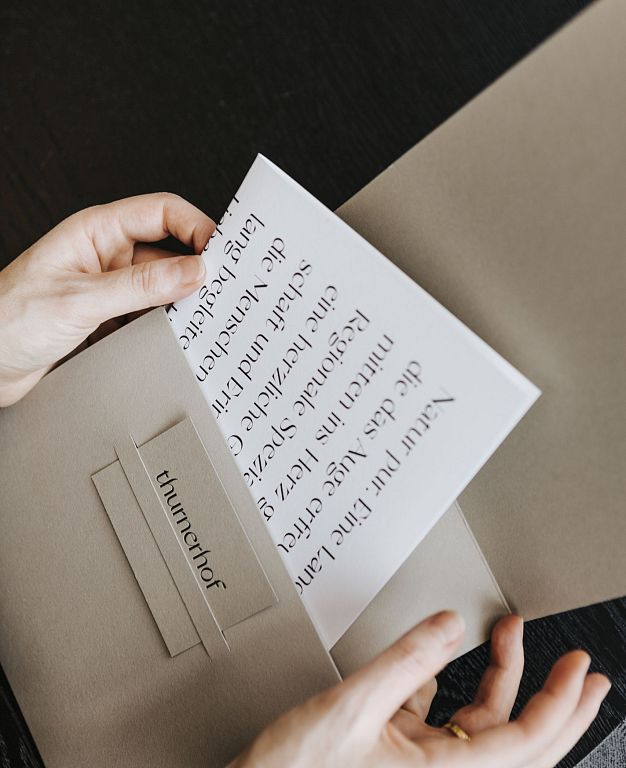 Natur pur: Eine Land
die das Auge erfreu
mitten ins Herz g
Regionale Spezia
eine herzliche G
schaft und Drin
die Menschen
lang begleite
thurnerhof